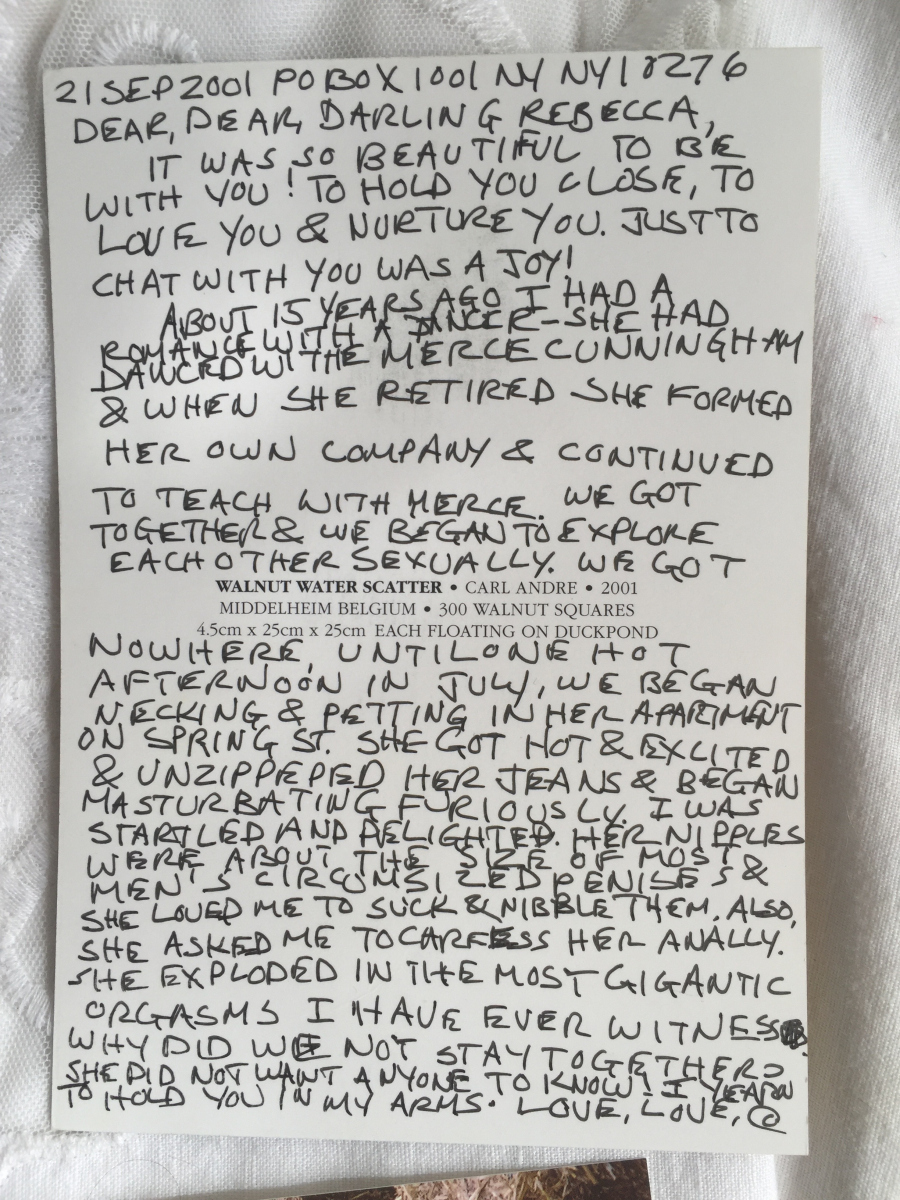 21 SEP 2001 PO BOX 1001 NY NY 10276
DEAR, DEAR, DARLING REBECCA,
IT WAS SO BEAUTIFUL TO BE
WITH YOU! TO HOLD YOU CLOSE, TO
LOVE YOU & NURTURE YOU. JUST TO
CHAT WITH YOU WAS A JOY!
ABOUT 15 YEARS AGO I HAD A
ROMANCE WITH A DANCER - SHE HAD
DANCED WITHE MERCE CUNNINGHAM
& WHEN SHE RETIRED SHE FORMED
HER OWN COMPANY & CONTINUED
TO TEACH WITH MERCE. WE GOT
TOGETHER & WE BEGAN TO EXPLORE
EACH OTHER SEXUALLY. WE GOT
WALNUT WATER SCATTER • CARL ANDRE • 2001
MIDDELHEIM BELGIUM • 300 WALNUT SQUARES
4.5cm x 25cm x 25cm EACH FLOATING ON DUCKPOND
NOWHERE, UNTIL ONE HOT
AFTERNOON IN JULY, WE BEGAN
NECKING & PETTING IN HER APARTMENT
ON SPRING ST. SHE GOT HOT & EXCITED
& UNZIPPEPED HER JEANS & BEGAN
MASTURBATING FURIOUSLY. I WAS
STARTLED AND DELIGHTED. HER NIPPLES
WERE ABOUT THE SIZE OF MOST
MEN'S CIRCUMSIZED PENISES &
SHE LOVED ME TO SUCK & NIBBLE THEM. ALSO,
SHE ASKED ME TO CARESS HER ANALLY.
SHE EXPLODED IN THE MOST GIGANTIC
ORGASMS I HAVE EVER WITNESS
WHY DID WE NOT STAY TOGETHER?
SHE DID NOT WANT ANYONE TO KNOW! I YEARN
TO HOLD YOU IN MY ARMS. LOVE, LOVE, @